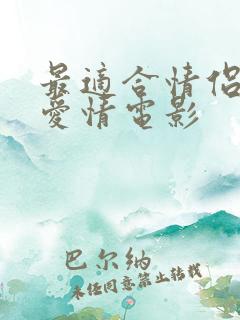 最適合情侶
愛情電影
巴尔纳
未经同意禁止转载